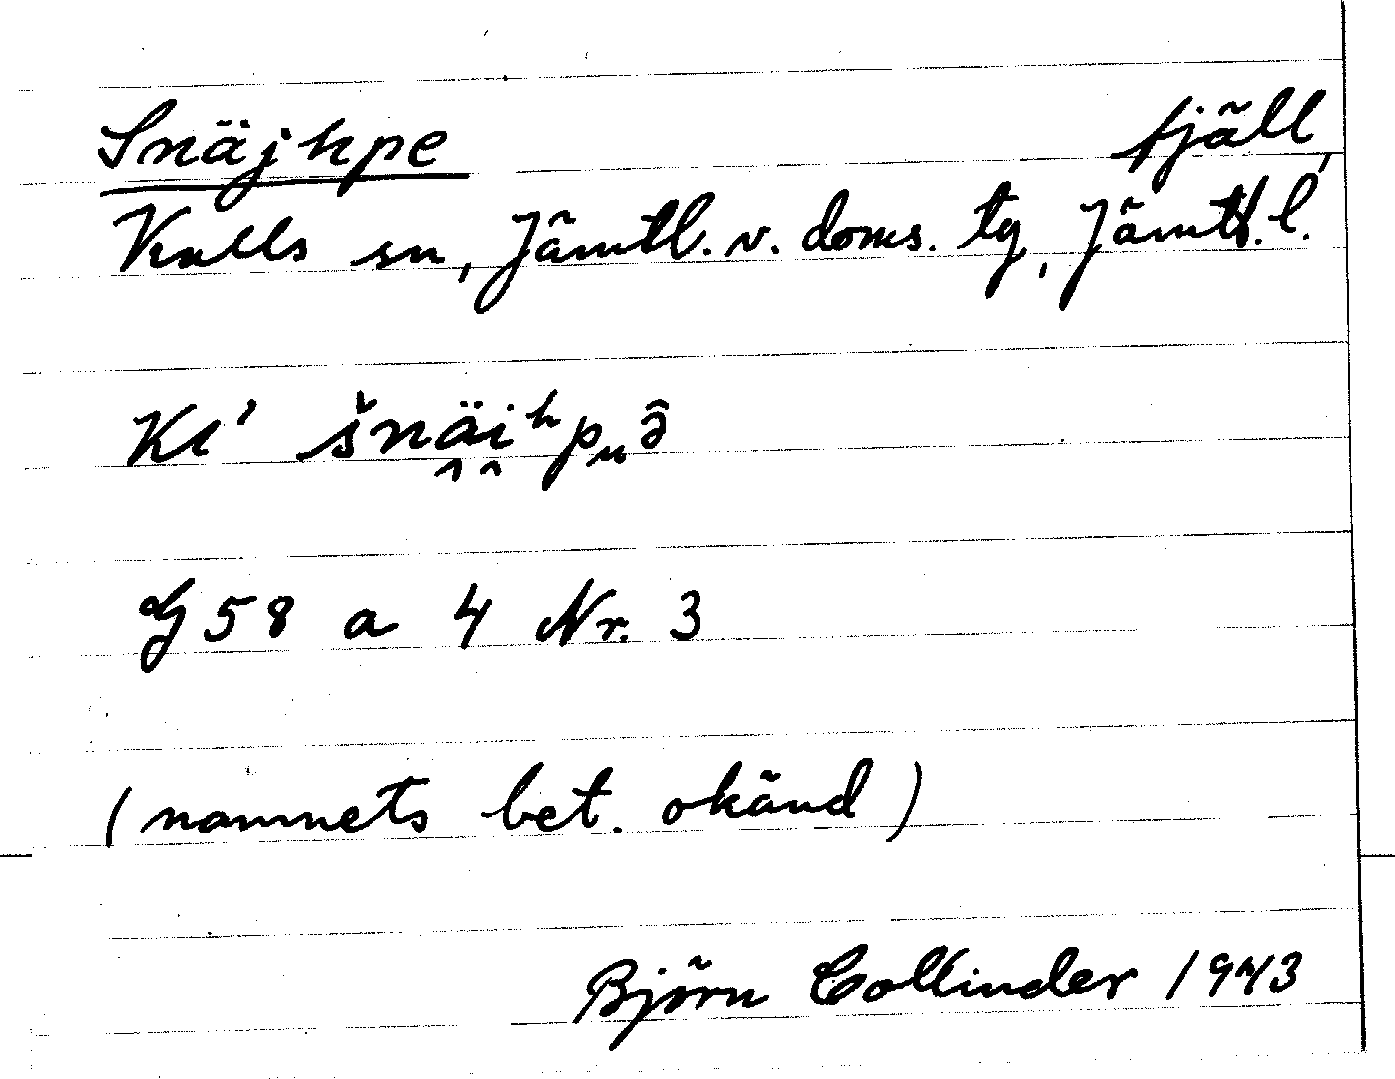 Snäjhpe fjäll,
Kalls sn, Jämtl. v. doms. tg, Jämtl. l.
Kl' šnä̯i̯ʰpᵤə̂
G 58 a 4 Nr. 3
(namnets bet. okänd)
Björn Collinder 1943